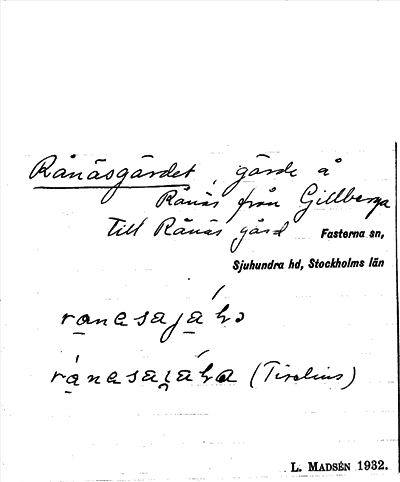 Rånäsgärdet, gärde å
Rånäs från Gillberga
till Rånäs gård Fasterna sn,
Sjuhundra hd, Stockholms län
(Tiselius)
L. MADSÉN 1932.